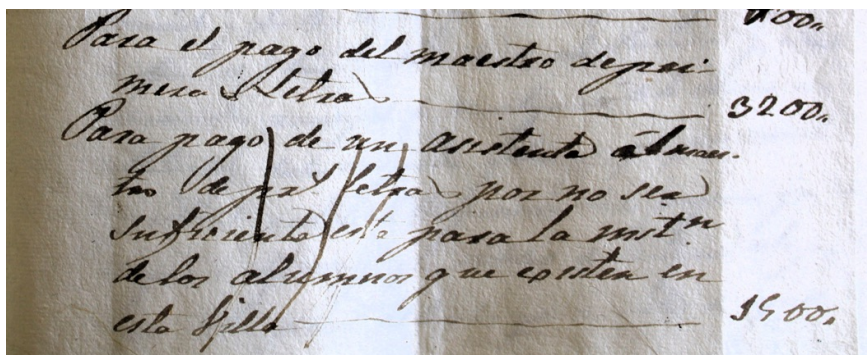 Para el pago del maestro de pri-
meras letras 3200„
Para pago de un asistente al maes-
tro de prs. letras por no ser
suficiente este para la instn
de los alumnos que existen en
esta Villa 1500„